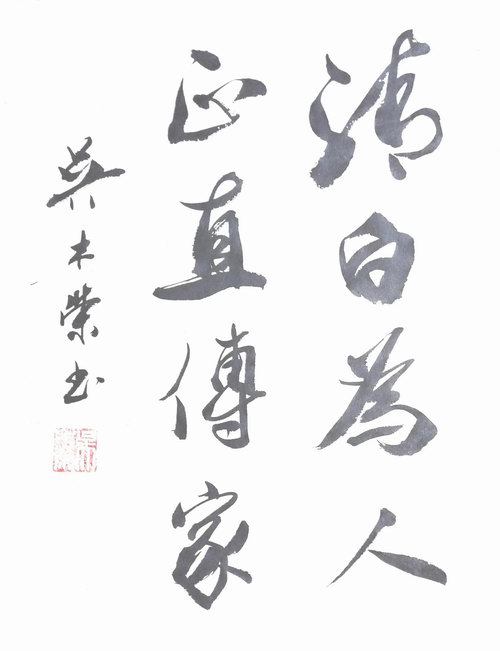 清白為人
正直傳家
吳木榮书